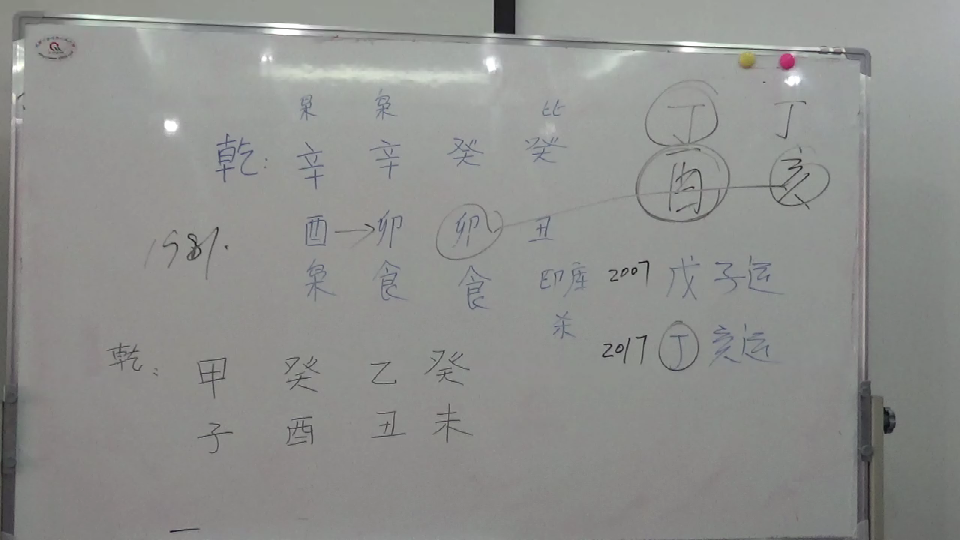 枭 枭 比 丁 丁
乾: 辛 辛 癸 癸 酉 亥
1981. 酉→卯 卯 丑
枭 食 食 印 2007 戊子运
杀 2017 丁亥运
乾: 甲 癸 乙 癸
子 酉 丑 未